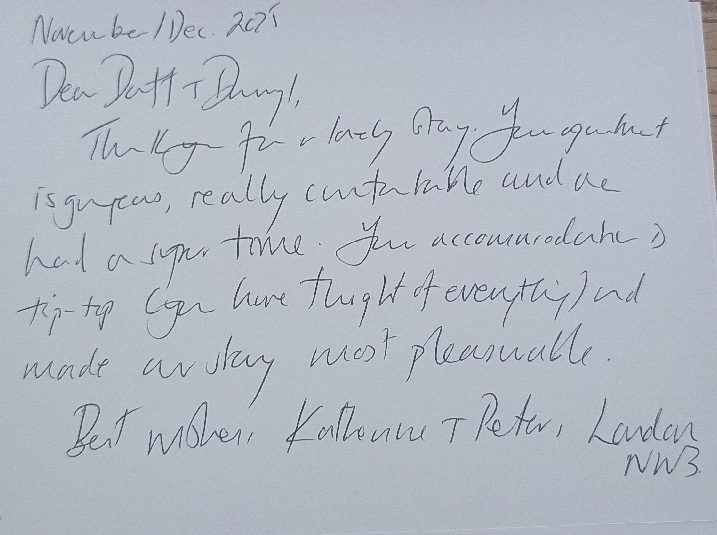 November/Dec. 2025
Dear & Darryl,
Thank you for a lovely stay. Your apartment
is gorgeous, really comfortable and we
had a super time. Your accommodation is
tip-top (you have thought of everything) and
made our stay most pleasurable.
Best wishes, Katherine & Peter, London
NW3.